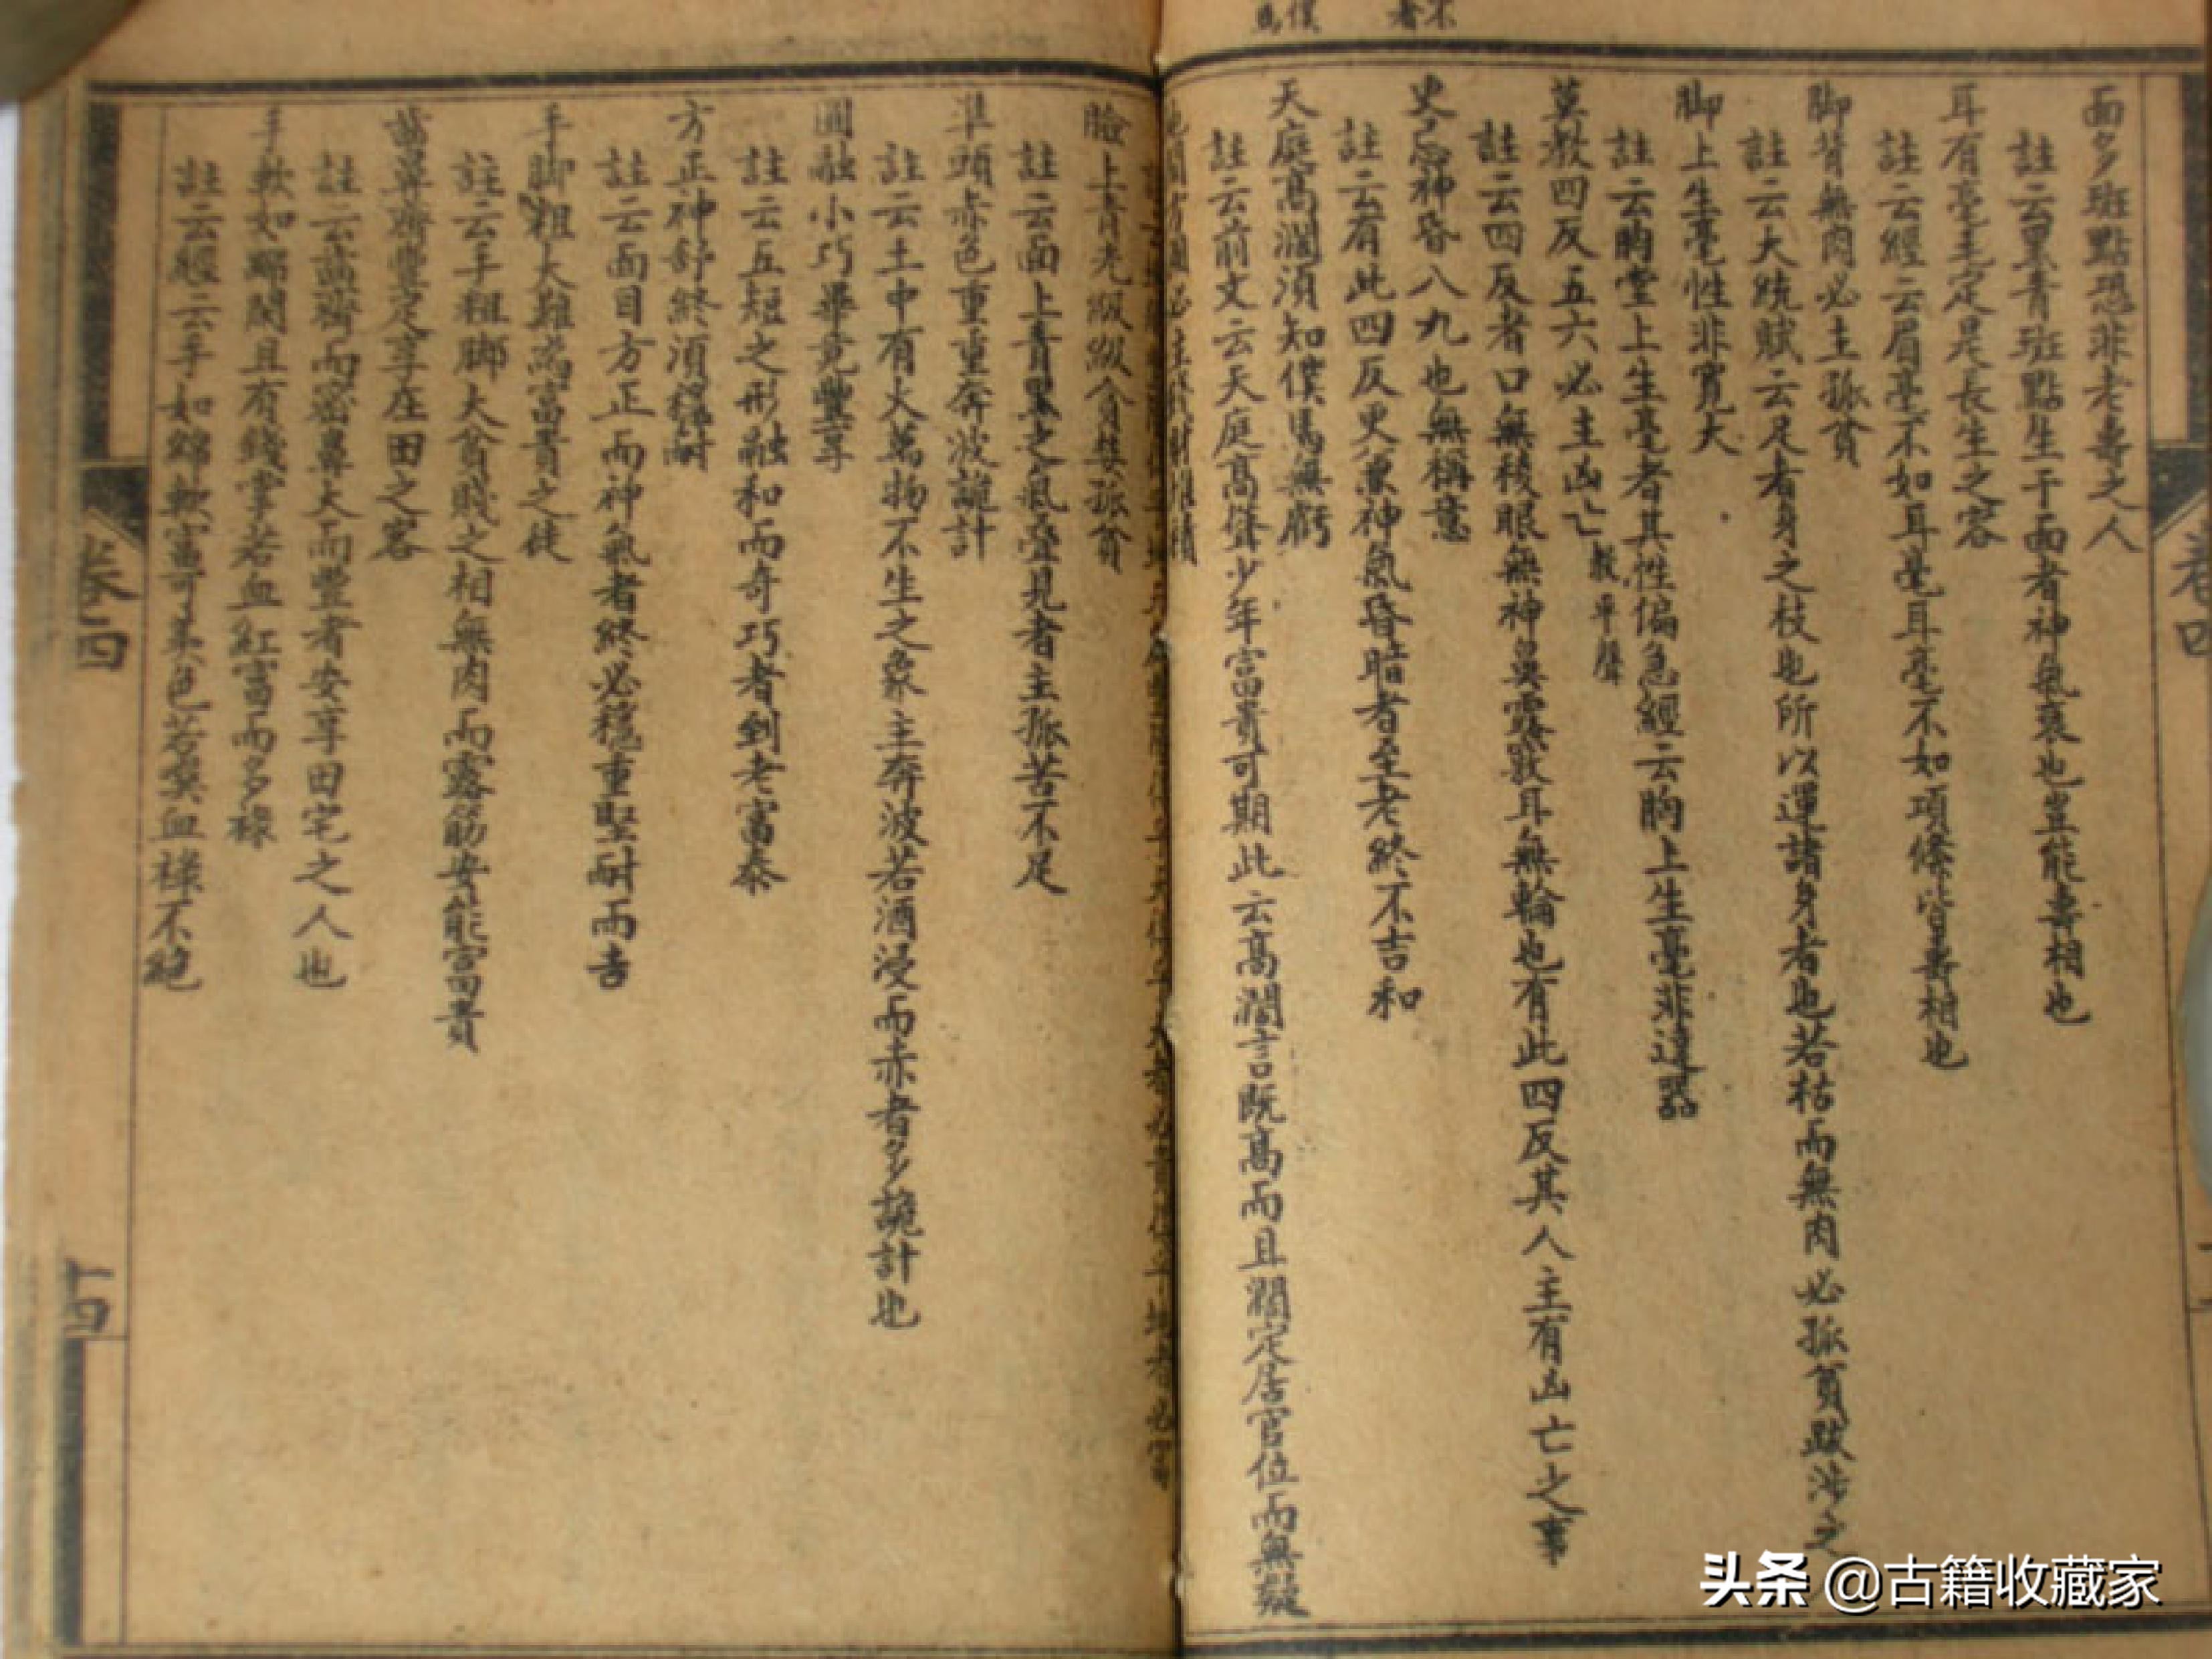 不者
僕馬
面多斑點恐非老壽之人
註云黑青斑點生于面者神氣衰也豈能壽相也
耳有毫毛定是長生之客
註云經云眉毫不如耳毫耳毫不如項絛皆壽相也
脚背無肉必主孤貧
註云大統賦云足者身之枝也所以運諸身者也若枯而無肉必孤貧跋涉之
脚上生毫性非寬大
註云胸堂上生毫者其性偏急經云胸上生毫非達器
莫教四反五六必主凶亡教平聲
註云四反者口無稜眼無神鼻露竅耳無輪也有此四反其人主有凶亡之事
更忌神昏八九也無稱意
註云有此四反更兼神氣昏暗者至老終不吉和
天庭高濶須知僕馬無虧
註云前文云天庭高聳少年富貴可期此云高濶言既高而且濶定居官位而無疑
臉上青光級級貪婪孤貧
註云面上青黑之氣疊見者主孤苦不足
準頭赤色重重奔波詭計
註云土中有火萬物不生之象主奔波若酒浸而赤者多詭計也
圓融小巧畢竟豐亨
註云五短之形融和而奇巧者到老富泰
方正神舒終須穩耐
註云面目方正而神氣者終必穩重堅耐而吉
手脚粗大難為富貴之徒
註云手粗脚大貧賤之相無肉而露筋安能富貴
齒鼻齊豐定享庄田之客
註云齒齊而密鼻大而豐者安享田宅之人也
手軟如綿閑且有錢掌若血紅富而多祿
註云經云手如綿軟富可羡色若噀血祿不絕
卷四
十四
卷四
头条 @古籍收藏家